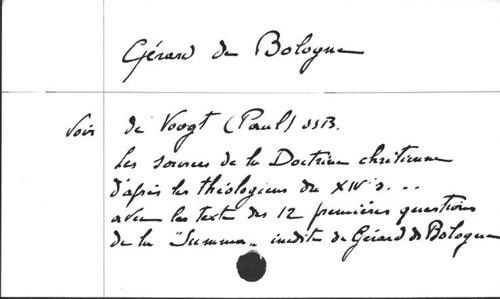 Gérard de Bologne
Voir de Voogt (Paul) OSB.
Les sources de la Doctrine chrétienne
d'après les théologiens du XIV s...
avec les texte des 12 premières questions
de la "Summa" inédite de Gérard de Bologne